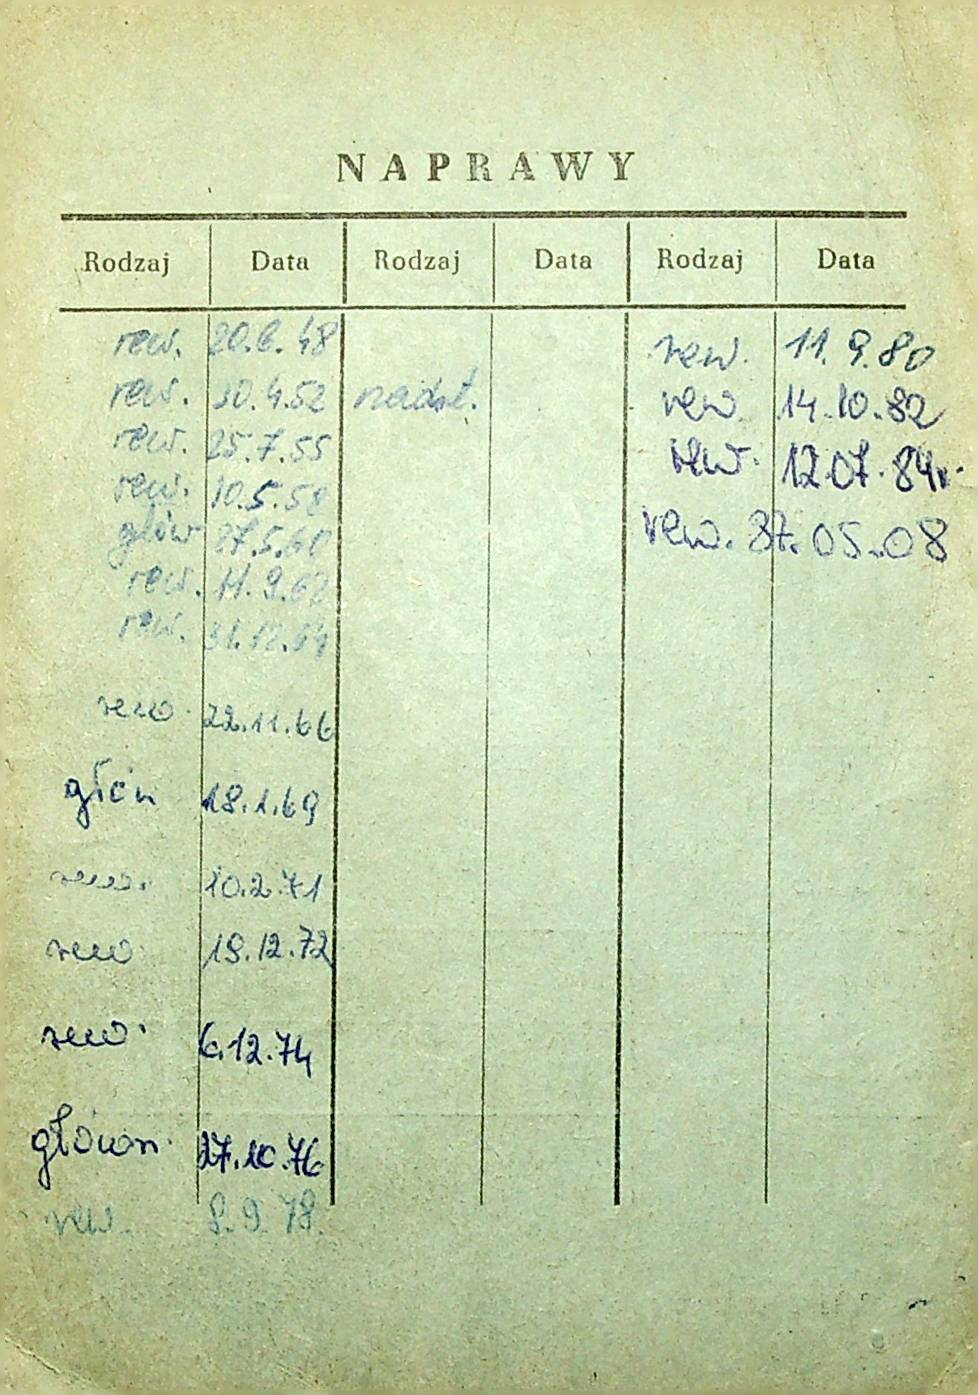 NAPRAWY
Rodzaj Data Rodzaj Data Rodzaj Data
rew. 20.6.48 rew. 11.9.80
rew. 30.4.52 nadst. rew. 14.10.82
rew. 25.7.55 rew. 12.07.84r.
rew. 10.5.58 rew. 87.05.08
głów 27.5.60
rew. 11.9.62
rew. 31.12.64
rew. 22.11.66
głów 18.1.69
rew. 10.2.71
rew 19.12.72
rew. 6.12.74
główn. 27.10.76
rew. 8.9.78.